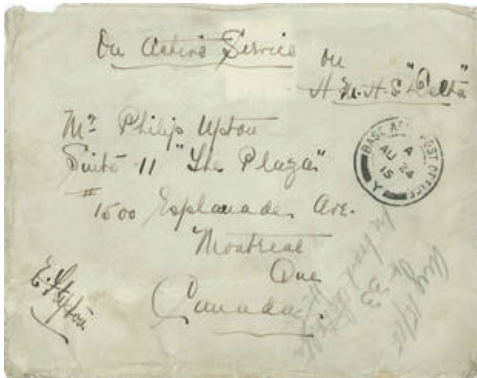 On Active Service on
H.M.H.S. "Delta"
Mr Philip Upton
Suite 11 "The Plaza"
#1500 Esplanade Ave.
Montreal
Que
Canada.
E. Upton
BASE ARMY POST OFFICE
A
AU 24
15
Y
Aug